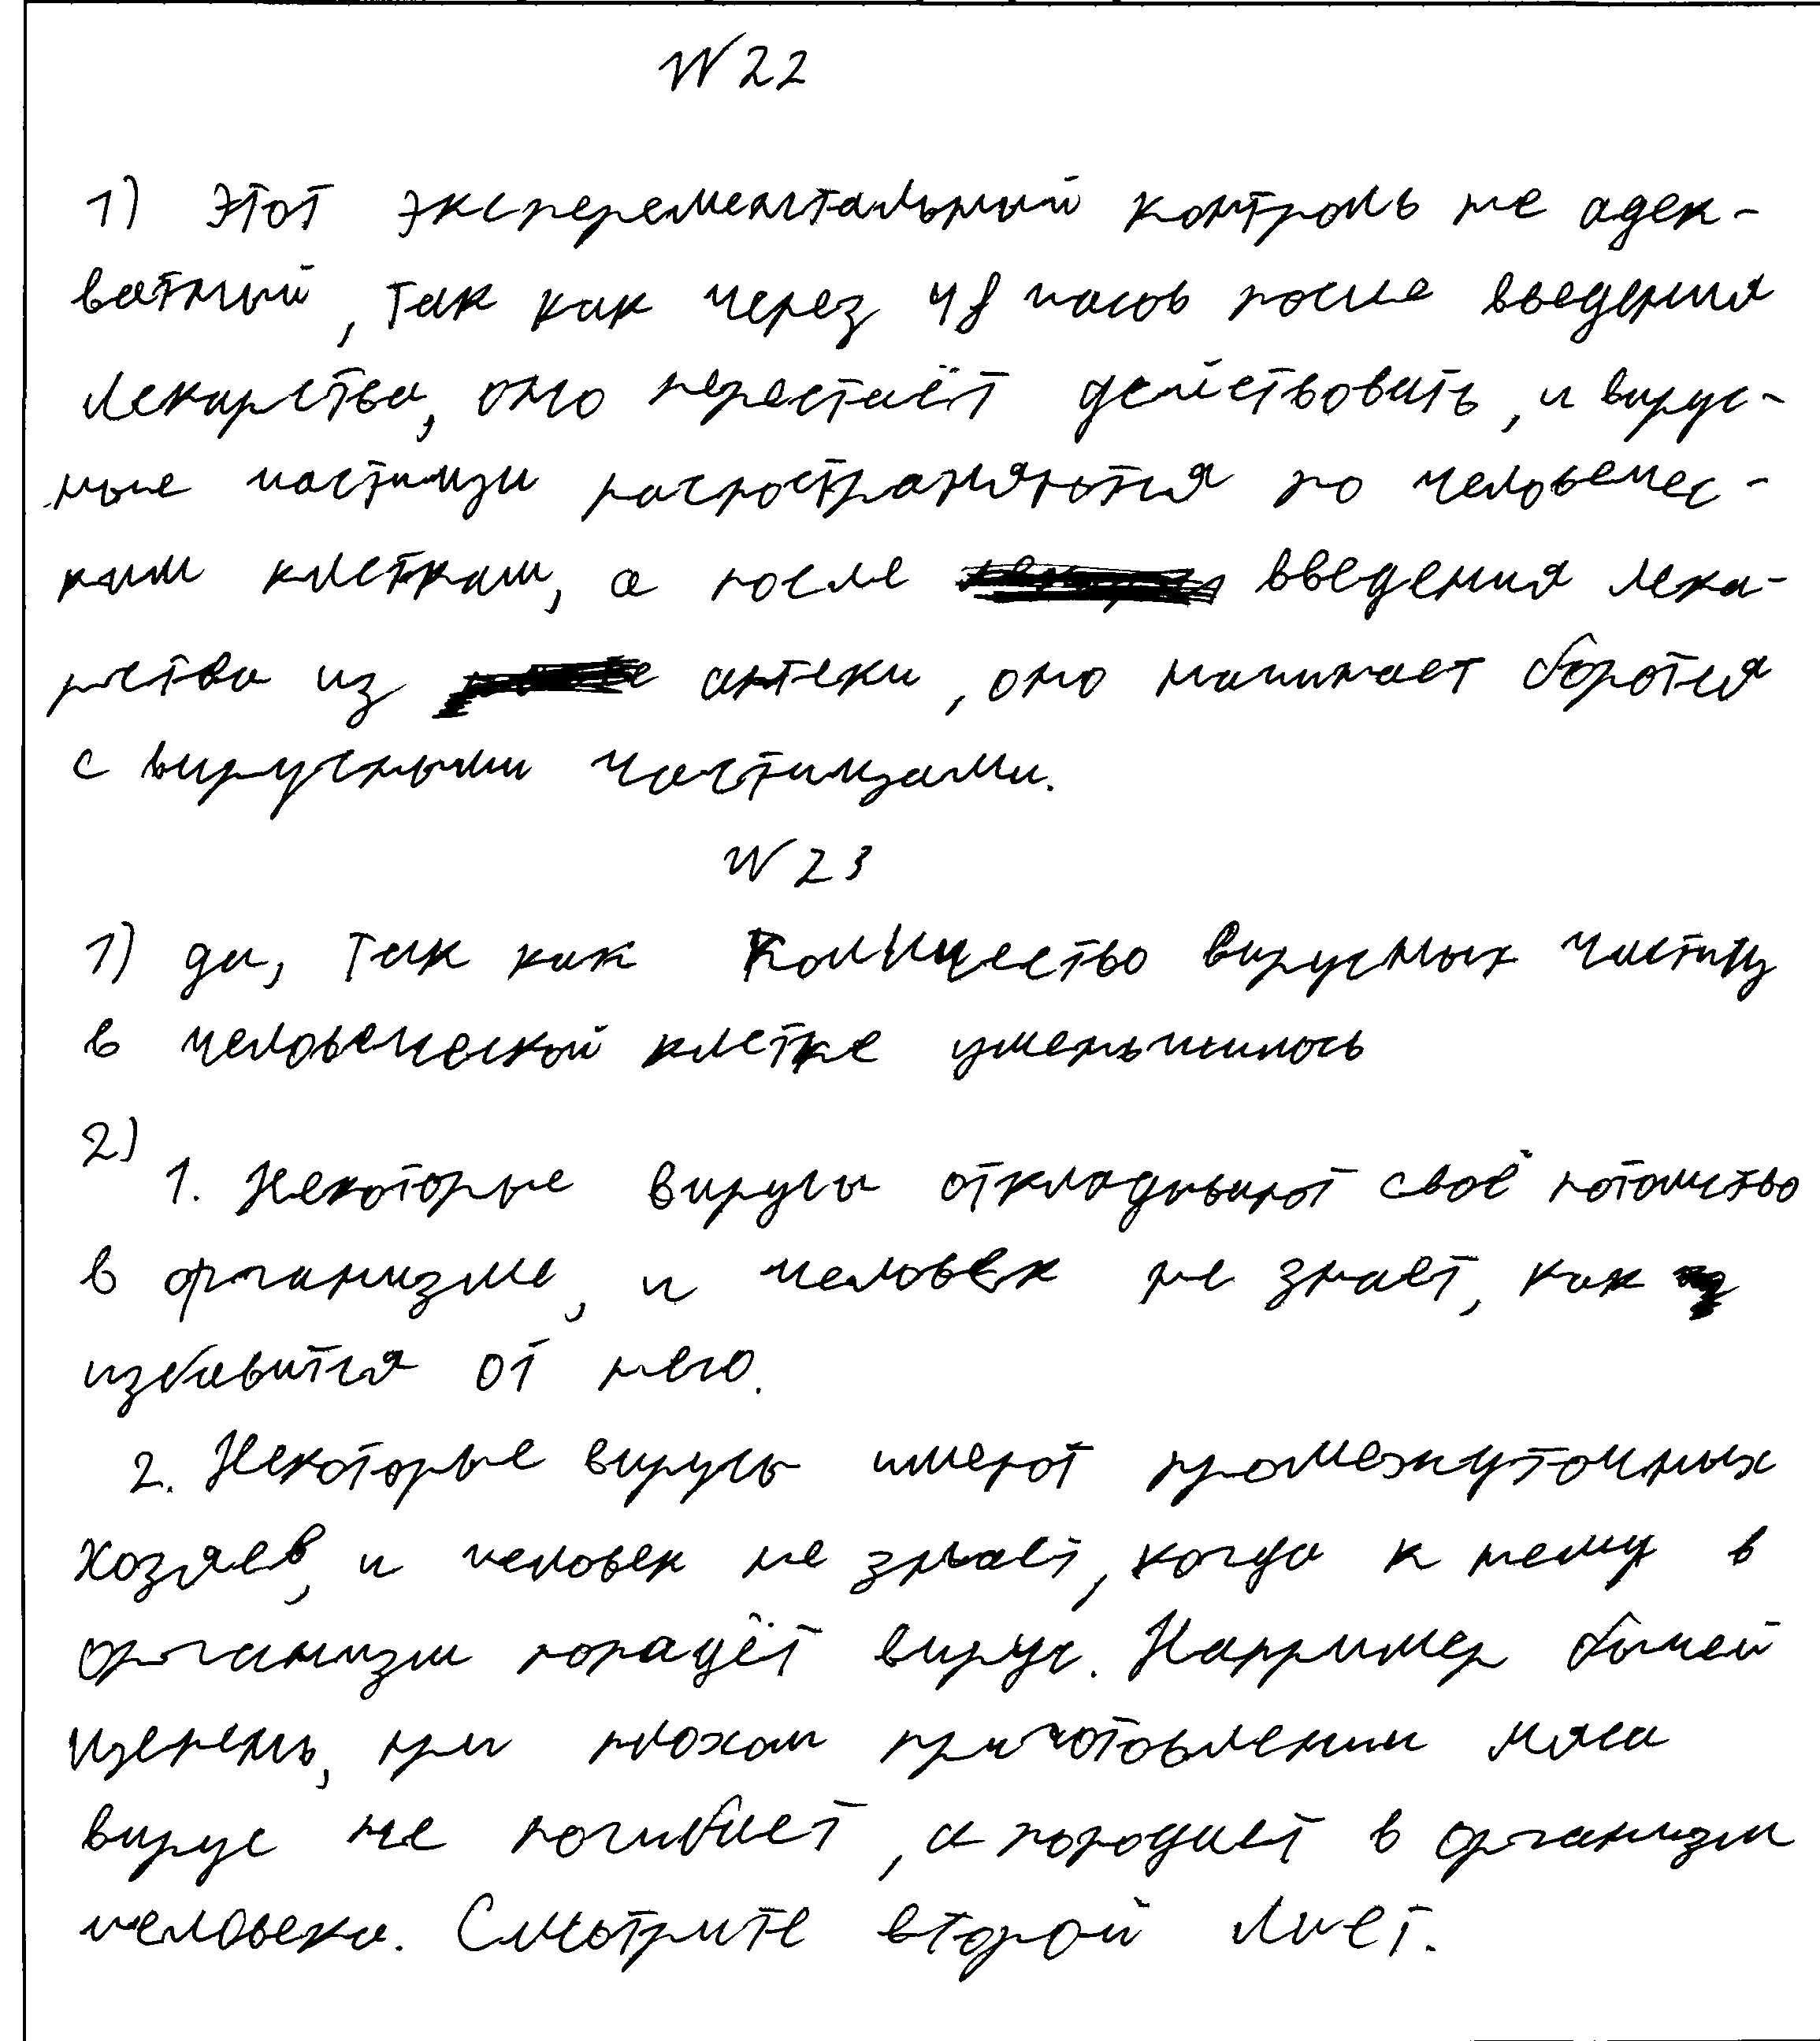 № 22
1) Этот эксперементальный контроль не адек-
ватный, так как через 48 часов после введения
лекарства, оно перестаёт действовать, и вирус-
ные частици распостраняются по человечес-
ким клеткам, а после введения лека-
рства из аптеки, оно начинает боротся
с вирусными частицами.
№ 23
1) да, так как количество вирусных частиц
в человеческой клетке уменьшилось
2)
1. Некоторые вирусы откладывают своё потомство
в организме, и человек не знает, как
избавится от него.
2. Некоторые вирусы имеют промежуточных
хозяев, и человек не знает, когда к нему в
организм попадёт вирус. Например бычей
цепень, при плохом приготовлении мяса
вирус не погибает, а попадает в организм
человека. Смотрите второй лист.